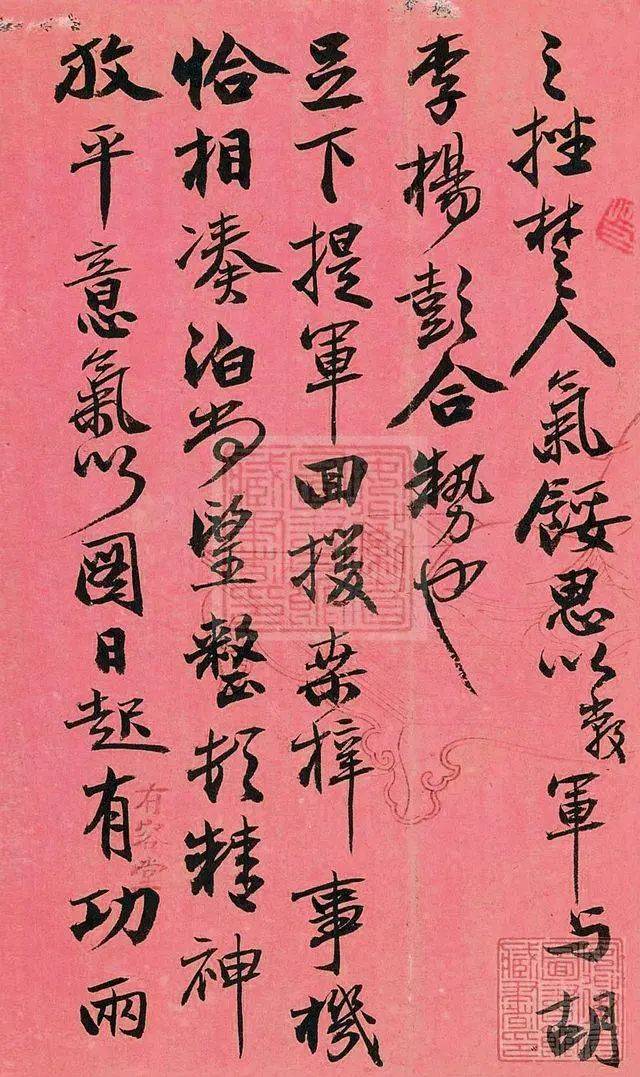 之挫楚人氣餒思以敝軍与胡
李楊彭合勢也
足下提軍回援桑梓事機
恰相湊泊尚望整頓精神
放平意氣以圖日起有功兩
有容堂